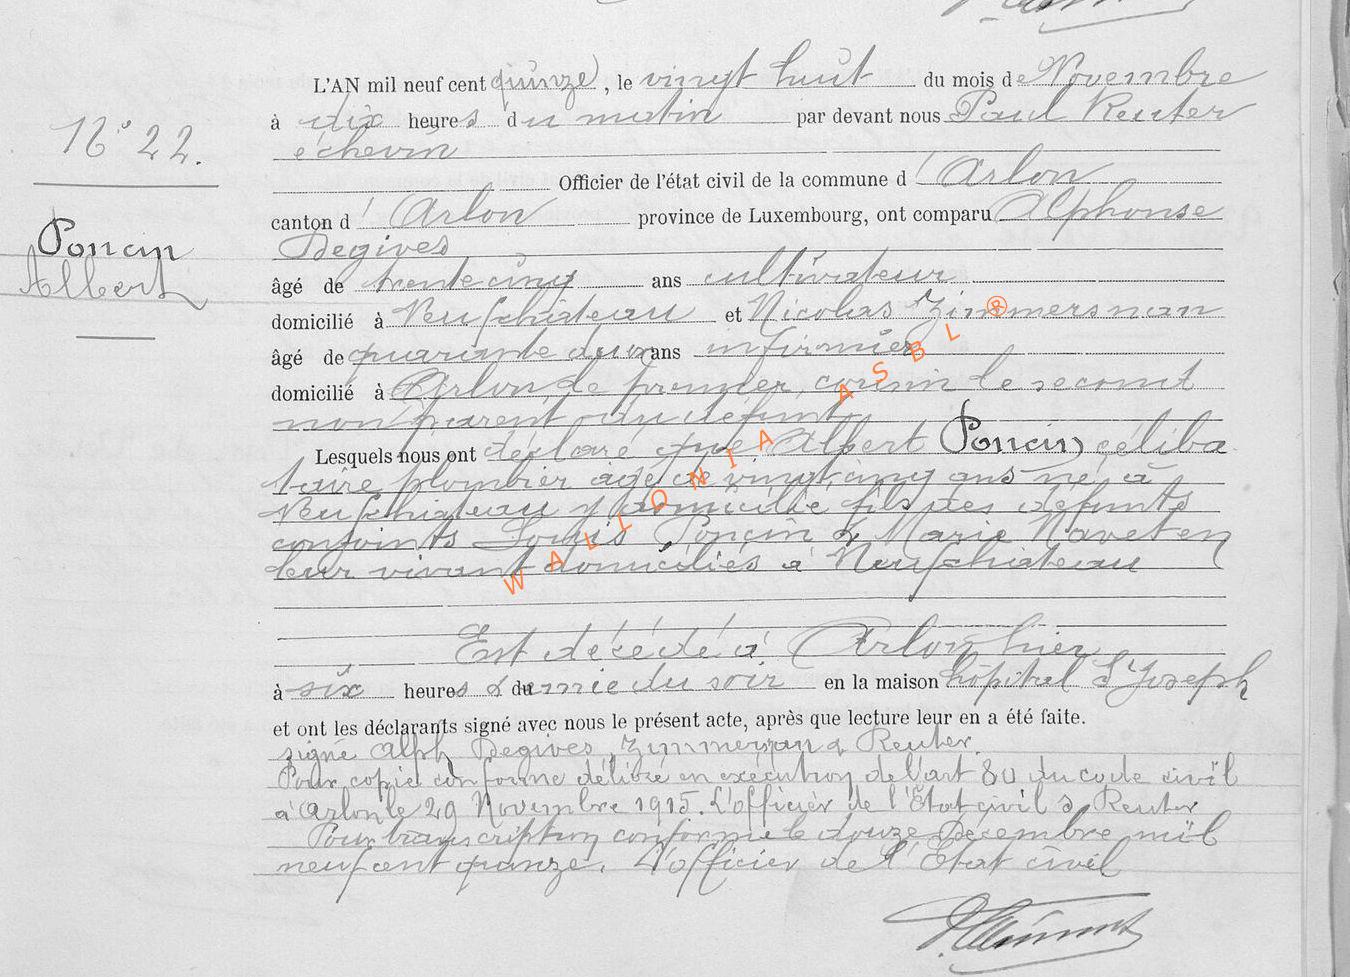 N° 22.
Poncin
Albert
L'AN mil neuf cent quinze, le vingt huit du mois de Novembre
à dix heures du matin par devant nous Paul Reuter
échevin
Officier de l'état civil de la commune d'Arlon
canton d'Arlon province de Luxembourg, ont comparu Alphonse
Degives
âgé de trente cinq ans cultivateur
domicilié à Neufchâteau et Nicolas Zimmersman
âgé de quarante deux ans infirmier
domicilié à Arlon le premier, cousin le second
non parent du défunt
Lesquels nous ont déclaré que Albert Poncin, céliba
taire plombier âgé de vingt cinq ans né à
Neufchâteau y domicilié fils des défunts
conjoints Louis Poncin & Marie Navet en
leur vivant domiciliés à Neufchâteau
Est décédé à Arlon hier
à six heures & demie du soir en la maison hôpital St Joseph
et ont les déclarants signé avec nous le présent acte, après que lecture leur en a été faite.
signé Alph. Degives, Zimmerman & Reuter.
Pour copie conforme délivré en exécution de l'art 80 du code civil
à Arlon le 29 Novembre 1915. L'officier de l'Etat civil s. Reuter
Pour transcription conforme le douze Décembre mil
neuf cent quinze. L'officier de l'Etat civil
WALLONIA ASBL ®